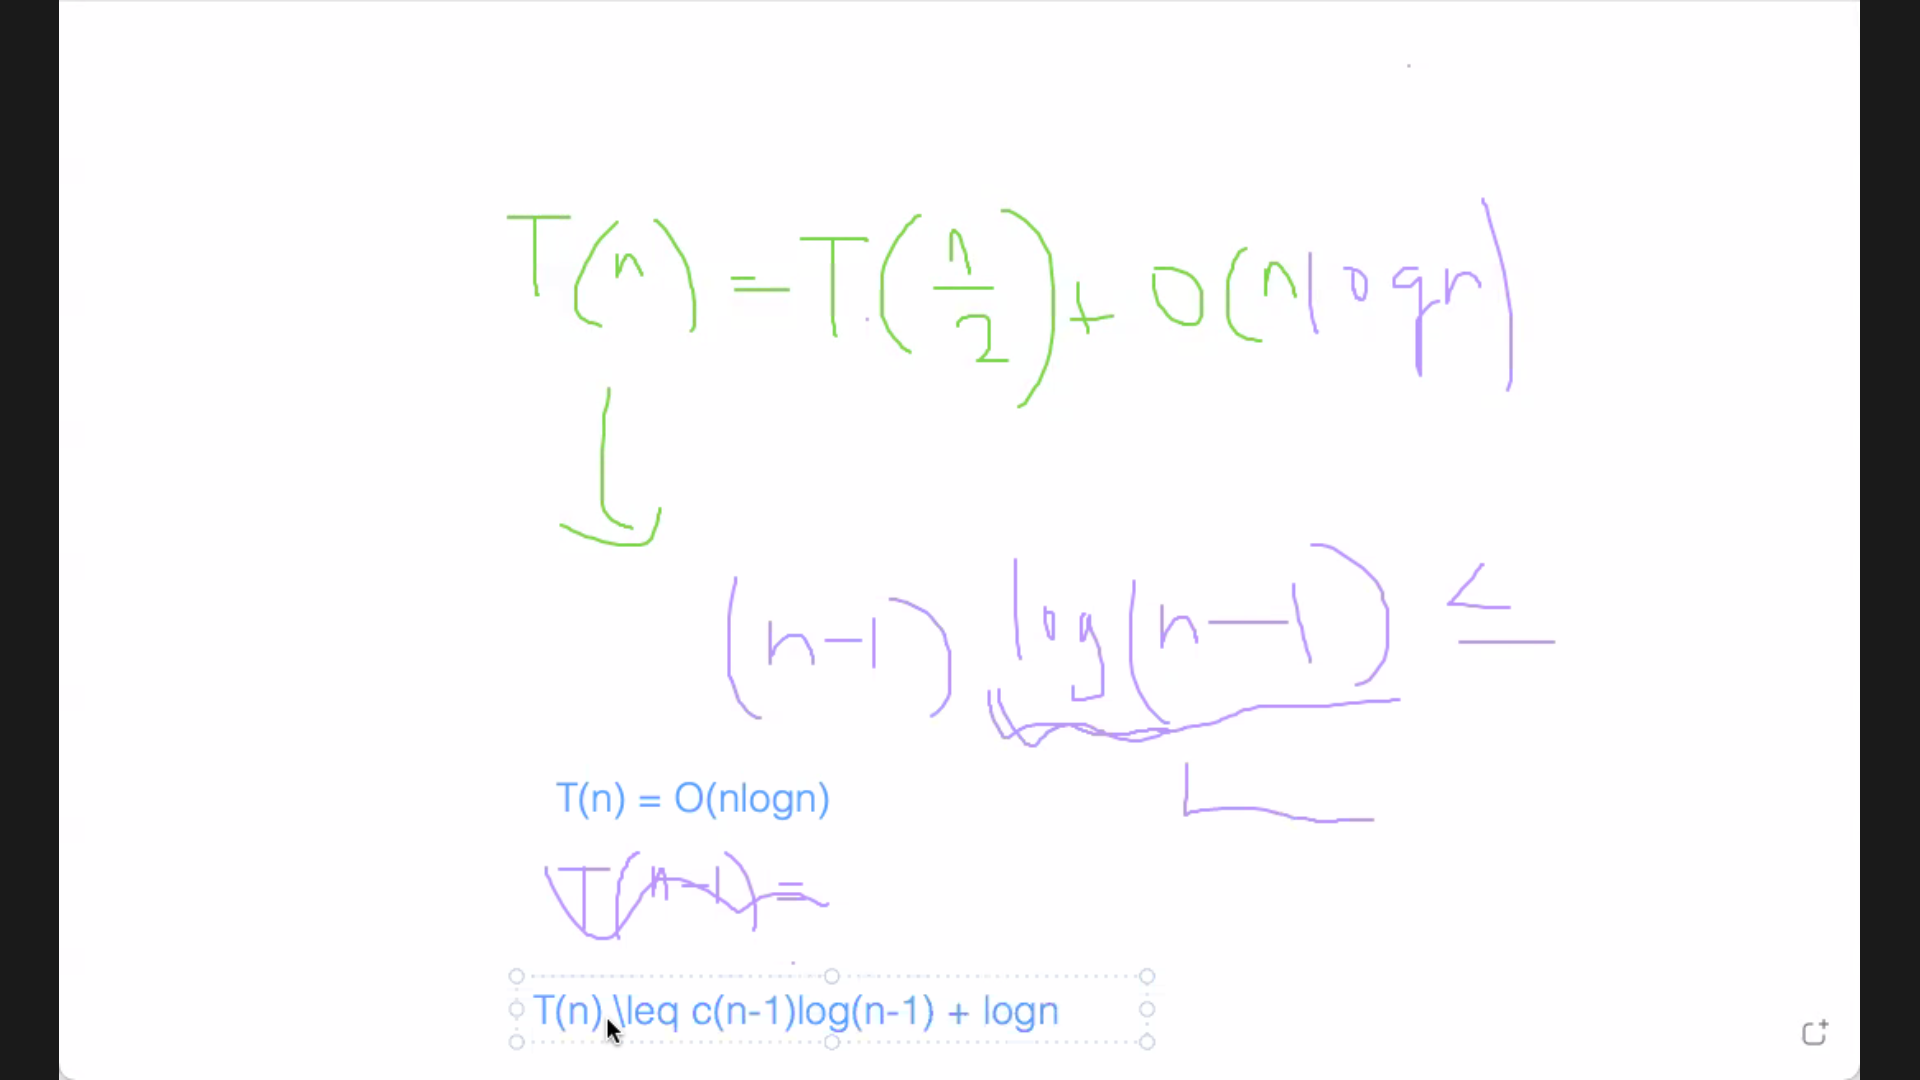 T(n) = T(n/2) + O(nlogn)
(n-1) log(n-1) ≤
T(n) = O(nlogn)
T(n-1) =
T(n) \leq c(n-1)log(n-1) + logn